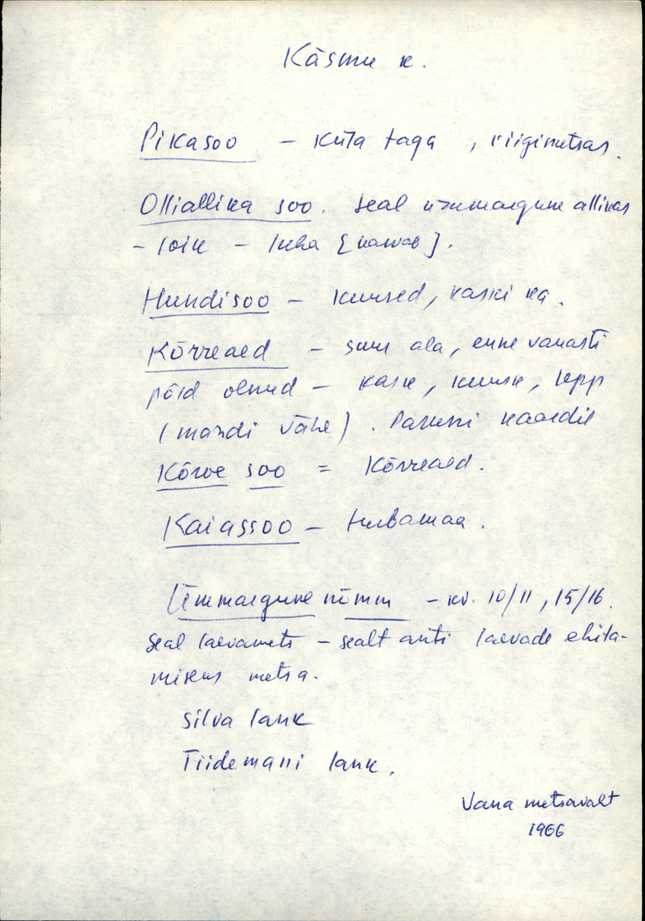 Käsmu k.
Pikasoo – küla taga, riigimetsas.
Olliallika soo. Seal ümmargune allikas
– loik – luha [nawad].
Hundisoo – kuused, kaski ka.
Kõrreaed – suur ala, enne vanasti
põld olnud – kask, kuusk, lepp
(mändi vähe). Paruni kaardil
Kõrve soo = Kõrreaed.
Kaiassoo – turbamaa.
Ümmargune nõmm – kv. 10/11, 15/16.
Seal laevamets – sealt anti laevade ehita-
miseks metsa.
Silva lank
Tiidemani lank.
Vana metsavaht
1966